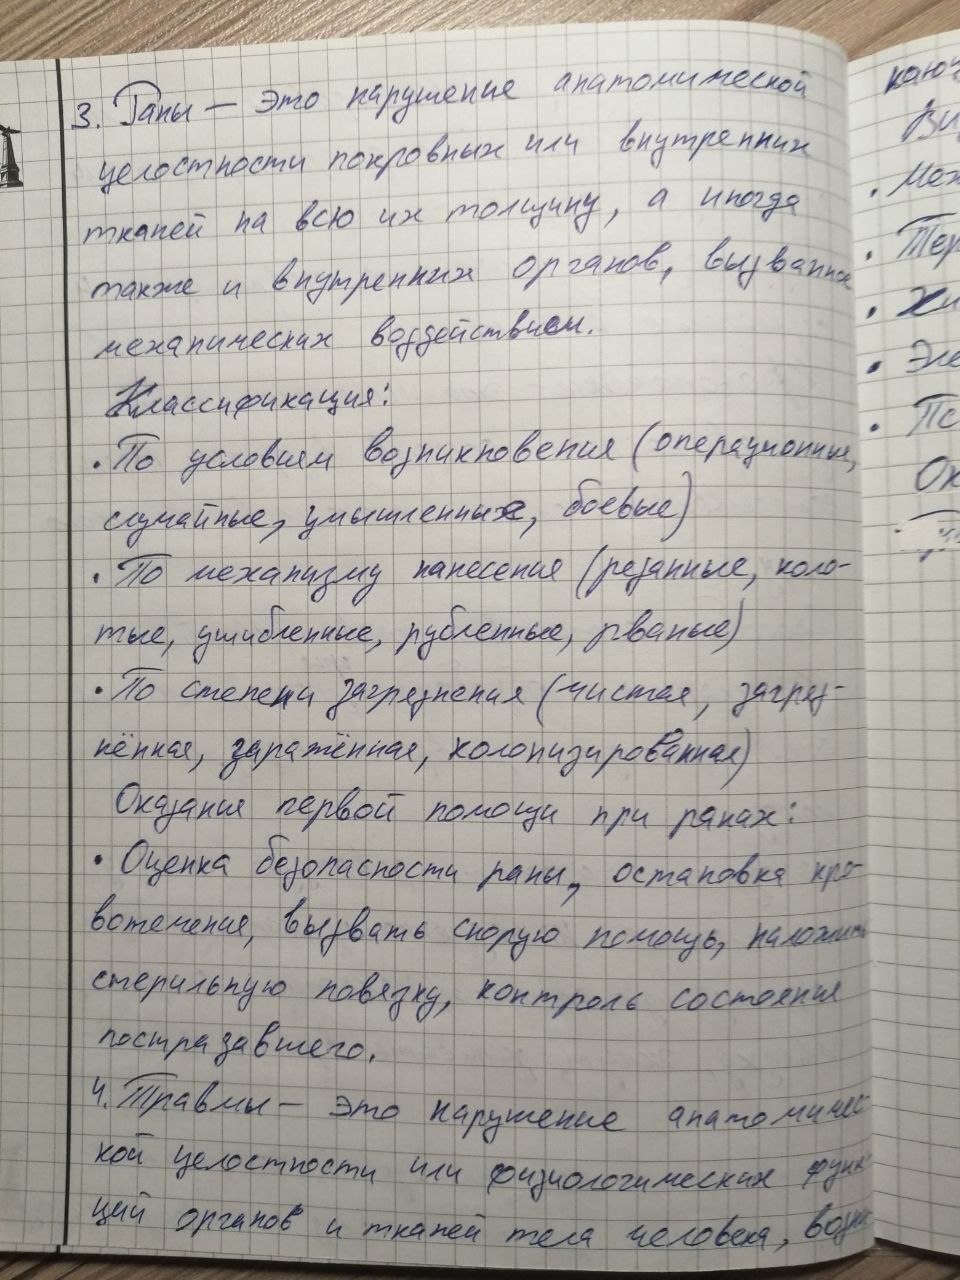 3. Раны – это нарушение анатомической
целостности покровных или внутренних
тканей на всю их толщину, а иногда
также и внутренних органов, вызванное
механических воздействием.
Классификация:
• По условиям возникновения (операционные,
случайные, умышленные, боевые)
• По механизму нанесения (резанные, коло-
тые, ушибленные, рубленные, рваные)
• По степени загрезнения (чистая, загрез-
нённая, заражённая, колонизированная)
Оказания первой помощи при ранах:
• Оценка безопасности раны, остановка кро-
вотечения, вызвать скорую помощь, наложить
стерильную повязку, контроль состояния
постразавшего.
4. Травмы – это нарушение анатомичес-
кой целостности или физиологических функ-
ций органов и тканей тела человека, возни
каю
Ви
• Мех
• Тер
• Хи
• Эле
• Пс
Ок